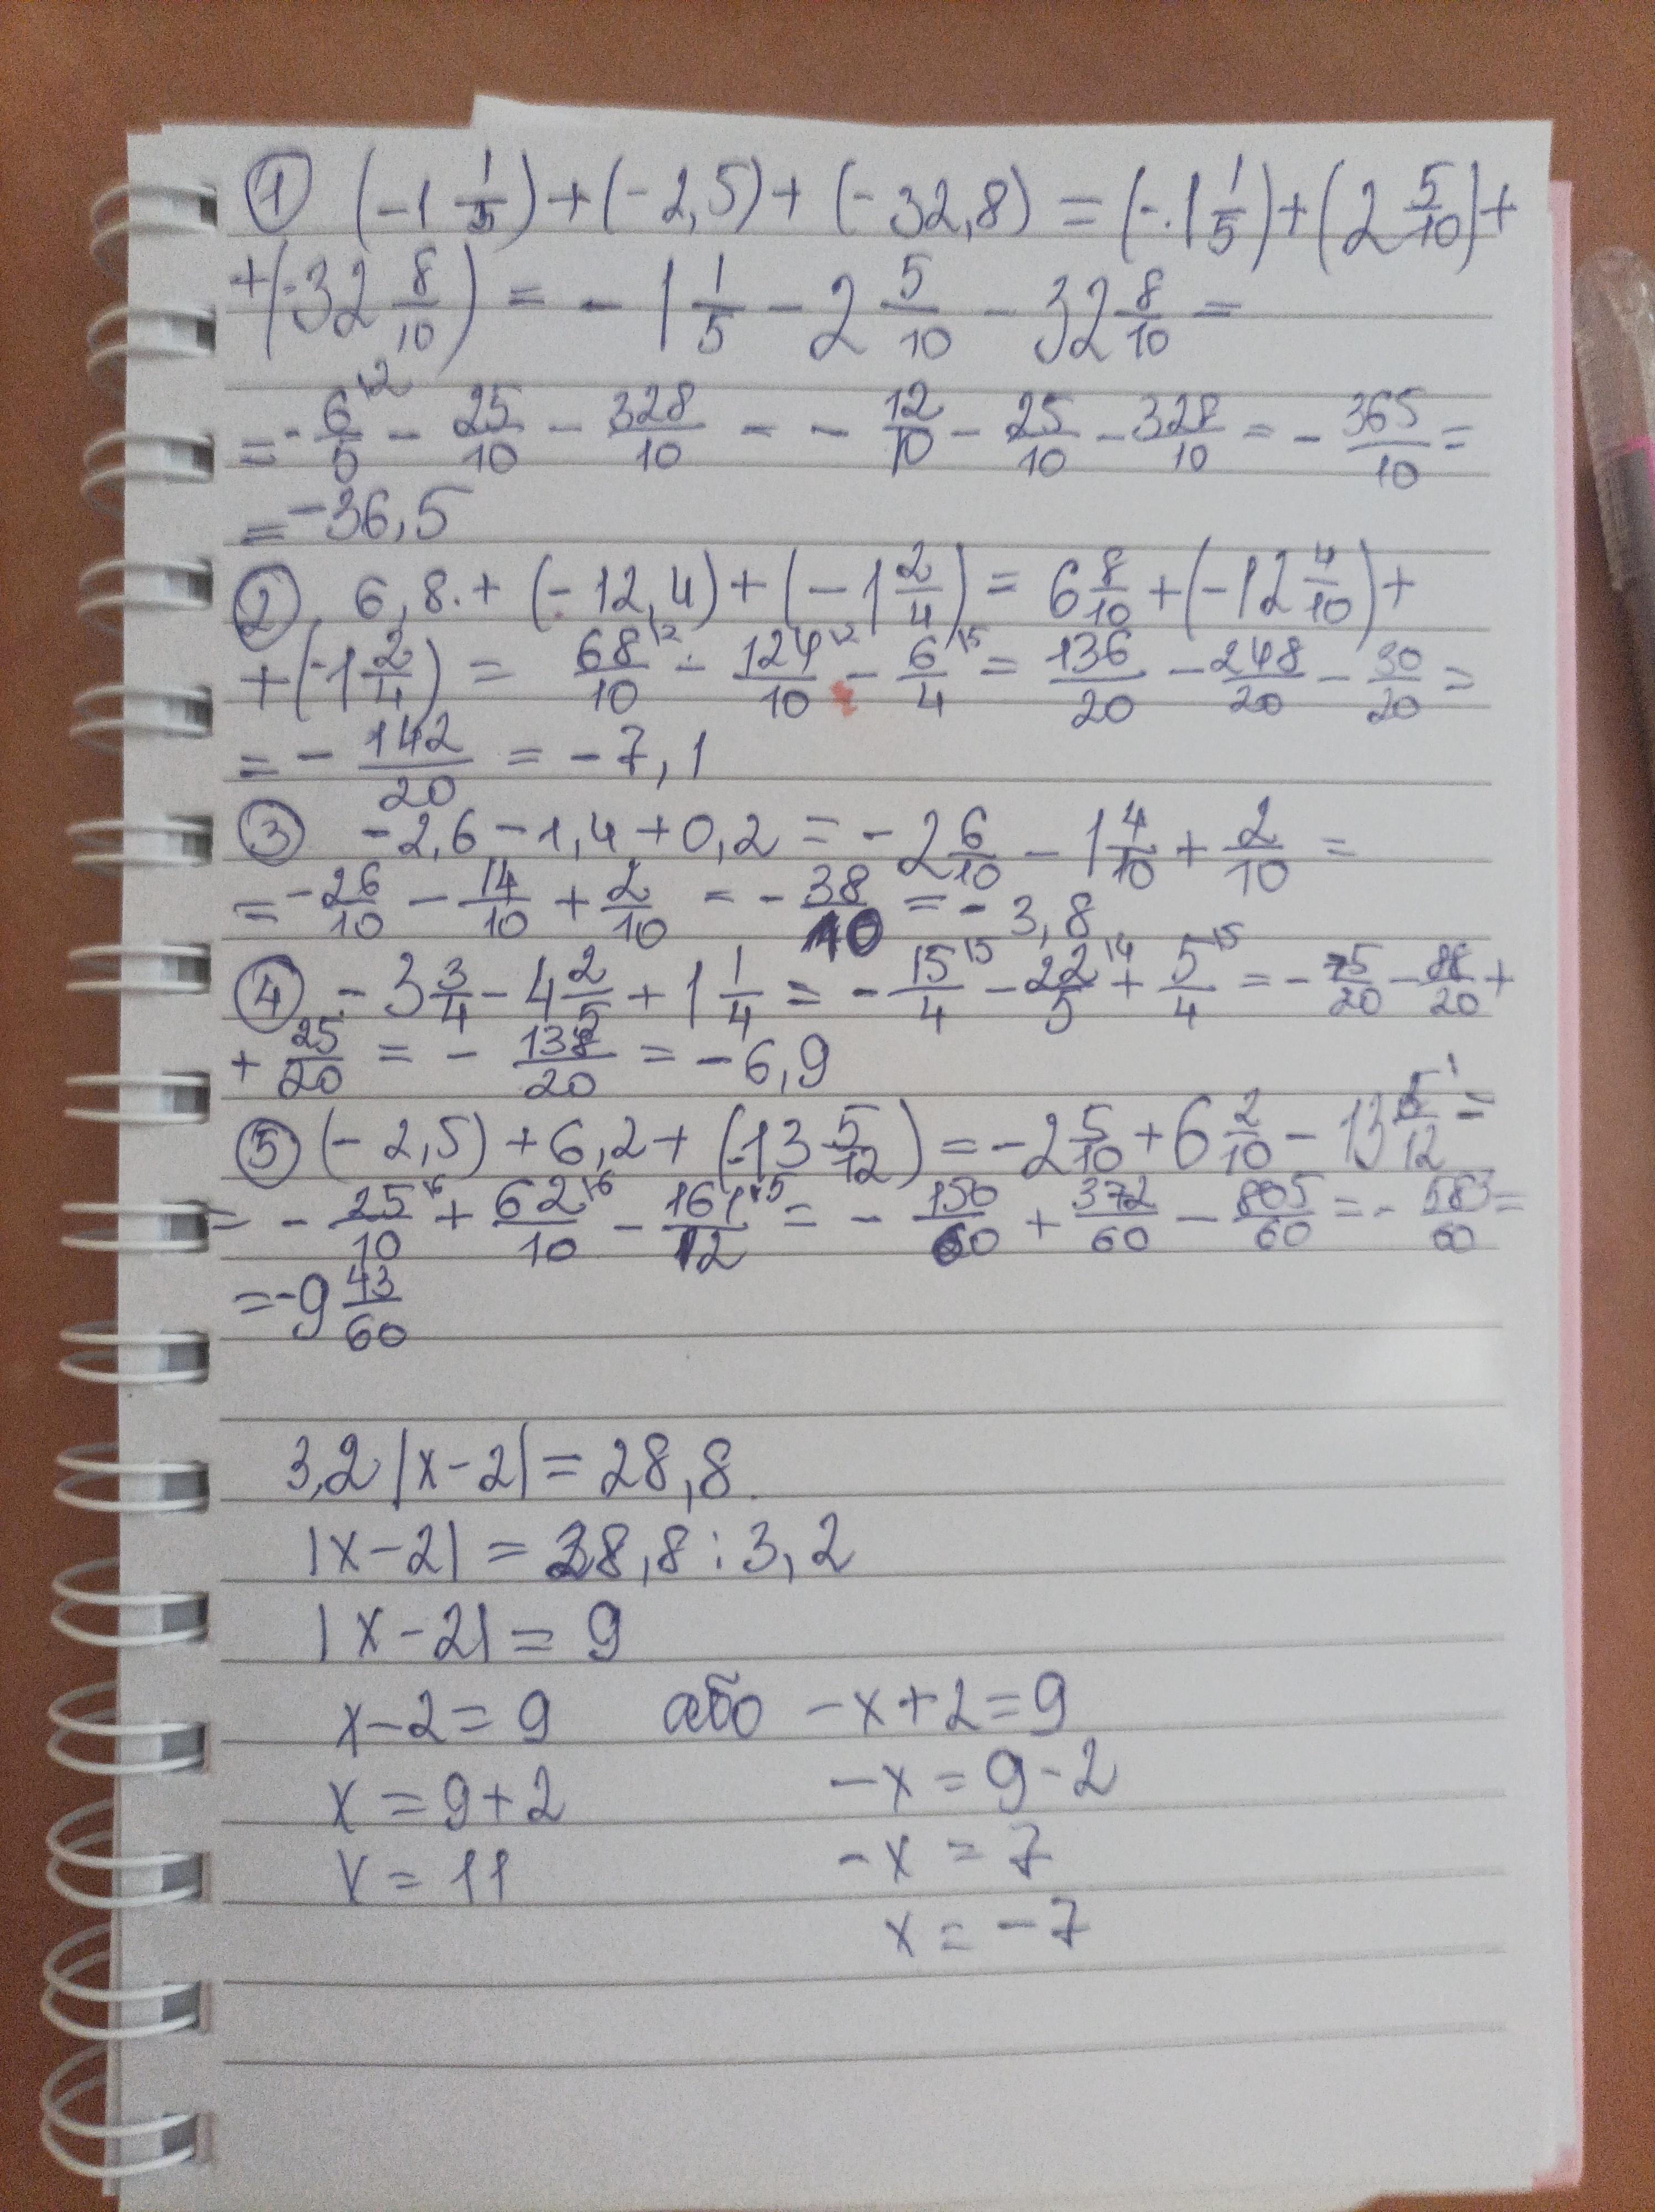 ① (-1 1/5) + (-2,5) + (-32,8) = (-1 1/5) + (2 5/10) +
+ (-32 8/10) = - 1 1/5 - 2 5/10 - 32 8/10 =
= - 6/5 \2 - 25/10 - 328/10 = - 12/10 - 25/10 - 328/10 = - 365/10 =
= -36,5
② 6,8 + (-12,4) + (-1 2/4) = 6 8/10 + (-12 4/10) +
+ (-1 2/4) = 68/10 \2 - 124/10 \2 - 6/4 \5 = 136/20 - 248/20 - 30/20 =
= - 142/20 = - 7,1
③ -2,6 - 1,4 + 0,2 = - 2 6/10 - 1 4/10 + 2/10 =
= - 26/10 - 14/10 + 2/10 = - 38/10 = - 3,8
④ - 3 3/4 - 4 2/5 + 1 1/4 = - 15/4 \5 - 22/5 \4 + 5/4 \5 = - 75/20 - 88/20 +
+ 25/20 = - 138/20 = - 6,9
⑤ (-2,5) + 6,2 + (-13 5/12) = -2 5/10 + 6 2/10 - 13 5/12 =
= - 25/10 \6 + 62/10 \6 - 161/12 \5 = - 150/60 + 372/60 - 805/60 = - 583/60 =
= -9 43/60
3,2 |x-2| = 28,8
|x-2| = 28,8 : 3,2
|x-2| = 9
x-2 = 9 або -x+2 = 9
x = 9+2 -x = 9-2
x = 11 -x = 7
x = -7